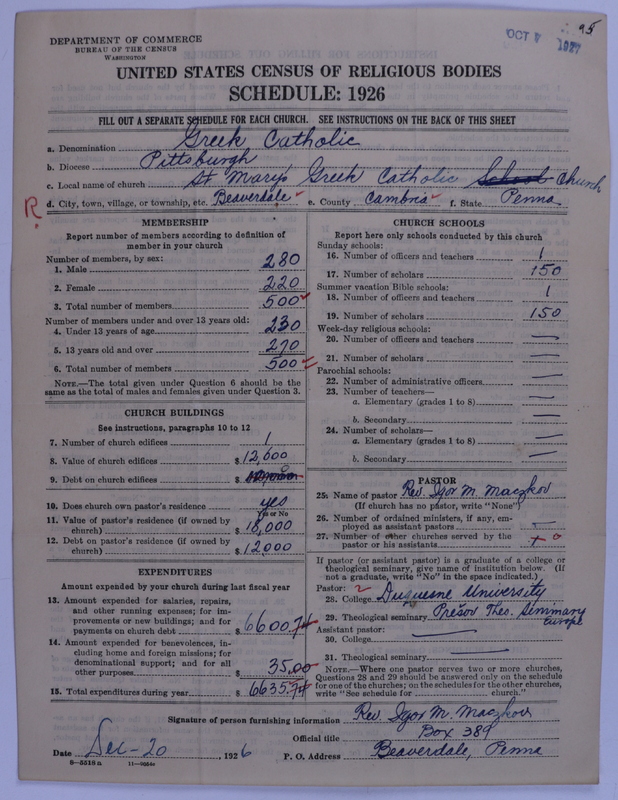 95
OCT 7 1927
DEPARTMENT OF COMMERCE
BUREAU OF THE CENSUS
WASHINGTON
UNITED STATES CENSUS OF RELIGIOUS BODIES
SCHEDULE: 1926
FILL OUT A SEPARATE SCHEDULE FOR EACH CHURCH. SEE INSTRUCTIONS ON THE BACK OF THIS SHEET
a. Denomination Greek Catholic
b. Diocese Pittsburgh
c. Local name of church St Mary's Greek Catholic School Church
R d. City, town, village, or township, etc. Beaverdale e. County Cambria f. State Penna.
MEMBERSHIP
Report number of members according to definition of
member in your church
Number of members, by sex:
1. Male 280
2. Female 220
3. Total number of members 500
Number of members under and over 13 years old:
4. Under 13 years of age 230
5. 13 years old and over 270
6. Total number of members 500
NOTE.—The total given under Question 6 should be the
same as the total of males and females given under Question 3.
CHURCH BUILDINGS
See instructions, paragraphs 10 to 12
7. Number of church edifices 1
8. Value of church edifices $ 12,000
9. Debt on church edifices $
10. Does church own pastor's residence yes
Yes or No
11. Value of pastor's residence (if owned by
church) $ 18,000
12. Debt on pastor's residence (if owned by
church) $ 12,000
EXPENDITURES
Amount expended by your church during last fiscal year
13. Amount expended for salaries, repairs,
and other running expenses; for im-
provements or new buildings; and for
payments on church debt $ 6600.74
14. Amount expended for benevolences, in-
cluding home and foreign missions; for
denominational support; and for all
other purposes $ 35.00
15. Total expenditures during year $ 6635.74
CHURCH SCHOOLS
Report here only schools conducted by this church
Sunday schools:
16. Number of officers and teachers 1
17. Number of scholars 150
Summer vacation Bible schools:
18. Number of officers and teachers 1
19. Number of scholars 150
Week-day religious schools:
20. Number of officers and teachers —
21. Number of scholars —
Parochial schools:
22. Number of administrative officers —
23. Number of teachers—
a. Elementary (grades 1 to 8) —
b. Secondary —
24. Number of scholars—
a. Elementary (grades 1 to 8) —
b. Secondary —
PASTOR
25. Name of pastor Rev. Igor M. Maczkov
(If church has no pastor, write "None")
26. Number of ordained ministers, if any, em-
ployed as assistant pastors —
27. Number of other churches served by the
pastor or his assistants 0
If pastor (or assistant pastor) is a graduate of a college or
theological seminary, give name of institution below. (If
not a graduate, write "No" in the space indicated.)
Pastor: 2
28. College Duquesne University
29. Theological seminary Prešov Theo. Seminary
Europe
Assistant pastor:
30. College —
31. Theological seminary —
NOTE.—Where one pastor serves two or more churches,
Questions 28 and 29 should be answered only on the schedule
for one of the churches; on the schedules for the other churches,
write "See schedule for church."
Signature of person furnishing information Rev. Igor M. Maczkov
Official title Box 389
Date Dec-20, 1926 P. O. Address Beaverdale, Penna
8-5518a